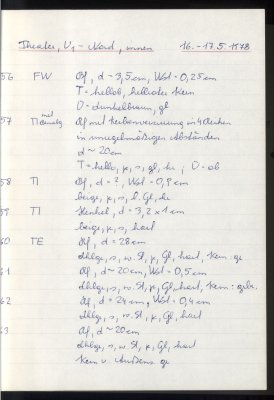 Theater, V1 - Nord, innen 16.-17.5.1978
56 FW Rf, d = 3,5cm, Wst = 0,25cm
T = hellob, hellroter Kern
Ü = dunkelbraun, gl
57 TI mit Rf mit Kerbenverzierung in 4
in unregelmäßigen Abständen
d ~ 20cm
T = hello, k, s, gl, hr, Ü = ob
58 TI Rf, d = ?, Wst = 0,9cm
beige, k, s, l. Gl, hr
59 TI Henkel, d = 3,2 x 1cm
beige, k, s, hart
60 TE Rf, d = 28cm
dklge, s, w. St, k, Gl, hart, Kern: ge
61 Rf, d ~ 20cm, Wst = 0,5cm
dklge, s, w. St, k, Gl, hart, Kern:
62 Rf, d = 24cm, Wst = 0,4cm
dklge, s, w. St, k, Gl, hart
63 Rf, d ~ 20cm
dklge, s, w. St, k, Gl, hart
Kern u. Außens ge